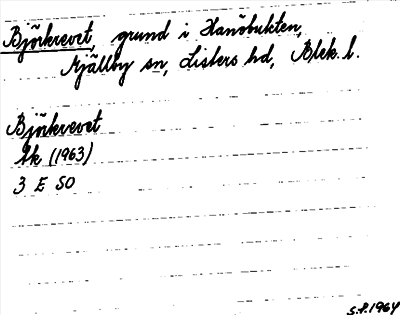 Björkrevet, grund i Hanöbukten,
Mjällby sn, Listers hd, Blek. l.
Björkrevet
Ak (1963)
3 E SO
S.F. 1964